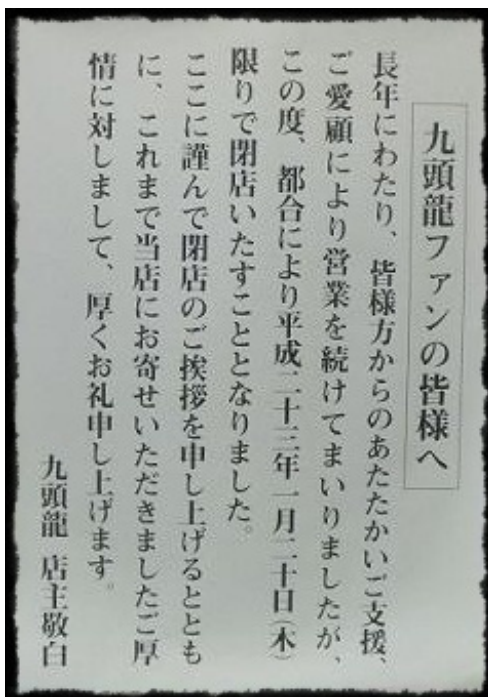 九頭龍ファンの皆様へ
長年にわたり、皆様方からのあたたかいご支援、
ご愛顧により営業を続けてまいりましたが、
この度、都合により平成二十三年一月二十日(木)
限りで閉店いたすこととなりました。
ここに謹んで閉店のご挨拶を申し上げるととも
に、これまで当店にお寄せいただきましたご厚
情に対しまして、厚くお礼申し上げます。
九頭龍 店主敬白